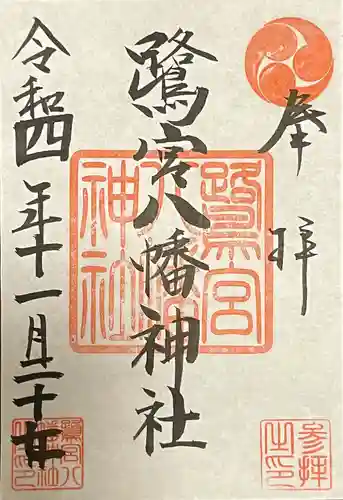 奉拝
鷺宮八幡神社
令和四年十一月二十日
鷺宮八幡神社
参拝之印